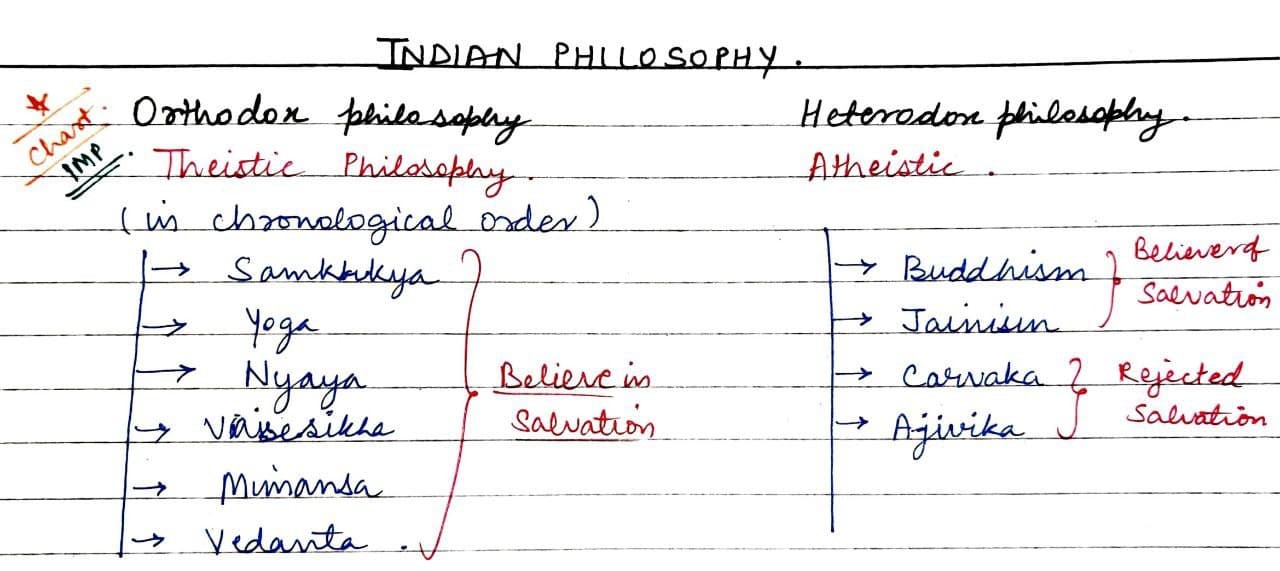 INDIAN PHILOSOPHY.
* Chart. IMP
Orthodox philosophy
Theistic Philosophy.
(in chronological order)
→ Samkhkya
→ Yoga
→ Nyaya
→ Vaisesikha
→ Mimansa
→ Vedanta.
Believe in
Salvation
Heterodox philosophy.
Atheistic.
→ Buddhism
→ Jainism
Believer of
Salvation
→ Carvaka
→ Ajivika
Rejected
Salvation